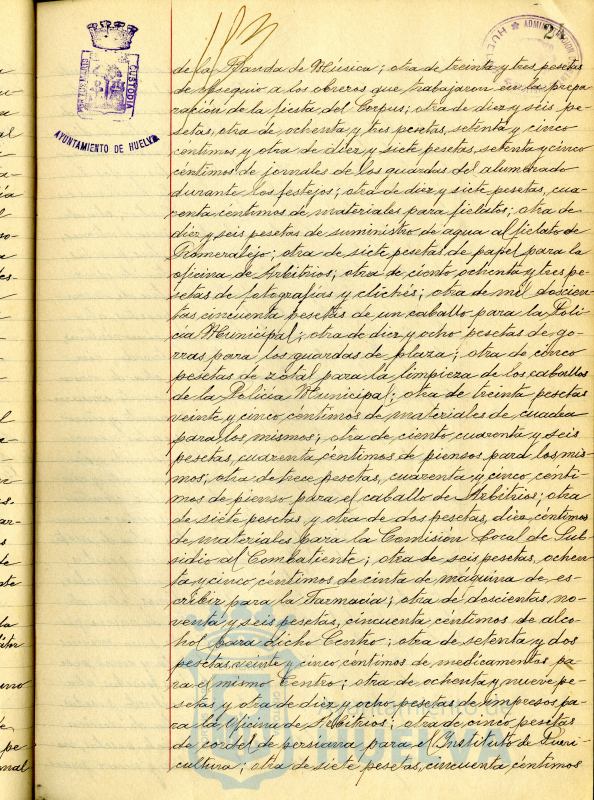 183
24
PORTUS MARIS
CUSTODIA
AYUNTAMIENTO DE HUELVA
de la Banda de Música; otra de treinta y tres pesetas
de obsequio a los obreros que trabajaron en la prepa-
ración de la fiesta del Corpus; otra de diez y seis pe-
setas, otra de ochenta y tres pesetas, setenta y cinco
centimos y otra de diez y siete pesetas, setenta y cinco
centimos de jornales de los guardas del alumbrado
durante los festejos; otra de diez y siete pesetas, cua-
renta céntimos de materiales para fielatos; otra de
diez y seis pesetas de suministro de agua al fielato de
Romeralejo; otra de siete pesetas de papel para la
oficina de Arbitrios; otra de ciento ochenta y tres pe-
setas de fotografías y clichés; otra de mil doscien-
tas cincuenta pesetas de un caballo para la Poli-
cía Municipal; otra de diez y ocho pesetas de go-
rras para los guardas de plaza; otra de cinco
pesetas de zotal para la limpieza de los caballos
de la Policía Municipal; otra de treinta pesetas
veinte y cinco céntimos de materiales de cuadra
para los mismos; otra de ciento cuarenta y seis
pesetas, cuarenta céntimos de piensos para los mis-
mos; otra de trece pesetas, cuarenta y cinco cénti-
mos de pienso para el caballo de Arbitrios; otra
de siete pesetas y otra de dos pesetas, diez céntimos
de materiales para la Comisión Local de Sub-
sidio al Combatiente; otra de seis pesetas, ochen-
ta y cinco céntimos de cinta de máquina de es-
cribir para la Farmacia; otra de doscientas no-
venta y seis pesetas, cincuenta céntimos de alco-
hol para dicho Centro; otra de setenta y dos
pesetas veinte y cinco céntimos de medicamentos pa-
ra el mismo Centro; otra de ochenta y nueve pe-
setas y otra de diez y ocho pesetas de impresos pa-
ra la Oficina de Arbitrios; otra de cinco pesetas
de cordel de persiana para el Instituto de Pueri-
cultura; otra de siete pesetas, cincuenta céntimos
Ayuntamiento de
HUELVA